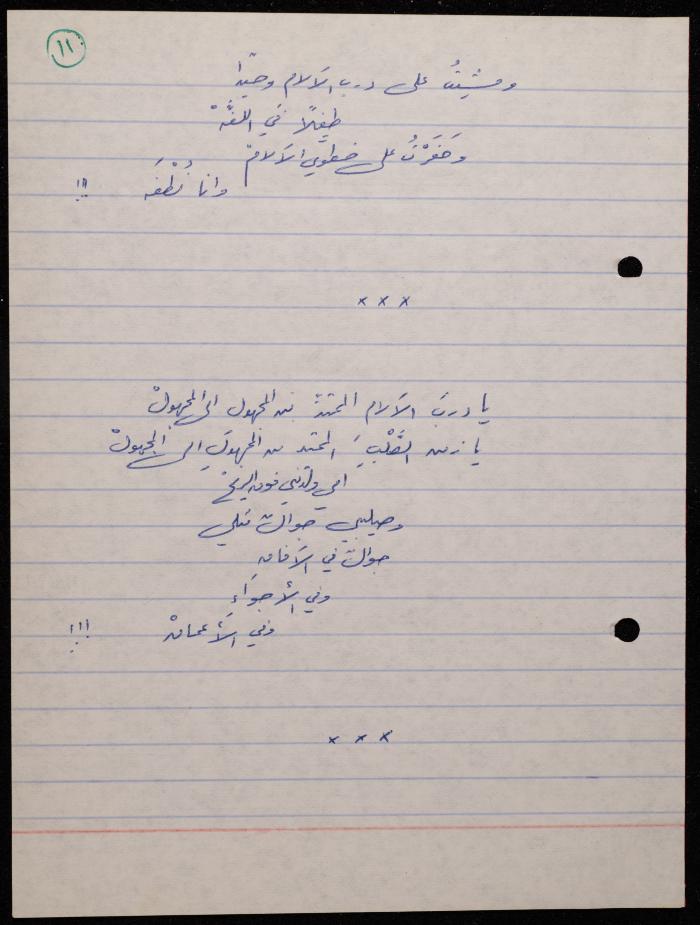 ١١
ومشيتُ على درب الآلام وحيدا
طفلًا في اللفَّهْ
وحَفَرْتُ على خطوي الآلامْ
وانا نُطْفَه !!!
× × ×
يا دربَ الآلام الممتدّ من المجهول الى المجهولْ
يا زمن الصَّلْبِ الممتد من المجهولِ الى المجهولْ
امي ولدتني فوق الريحْ
وصليبي جوالٌ مثلي
جوالٌ في الآفاقِ
وفي الأجواءِ
وفي الأعماقْ !!!
× × ×